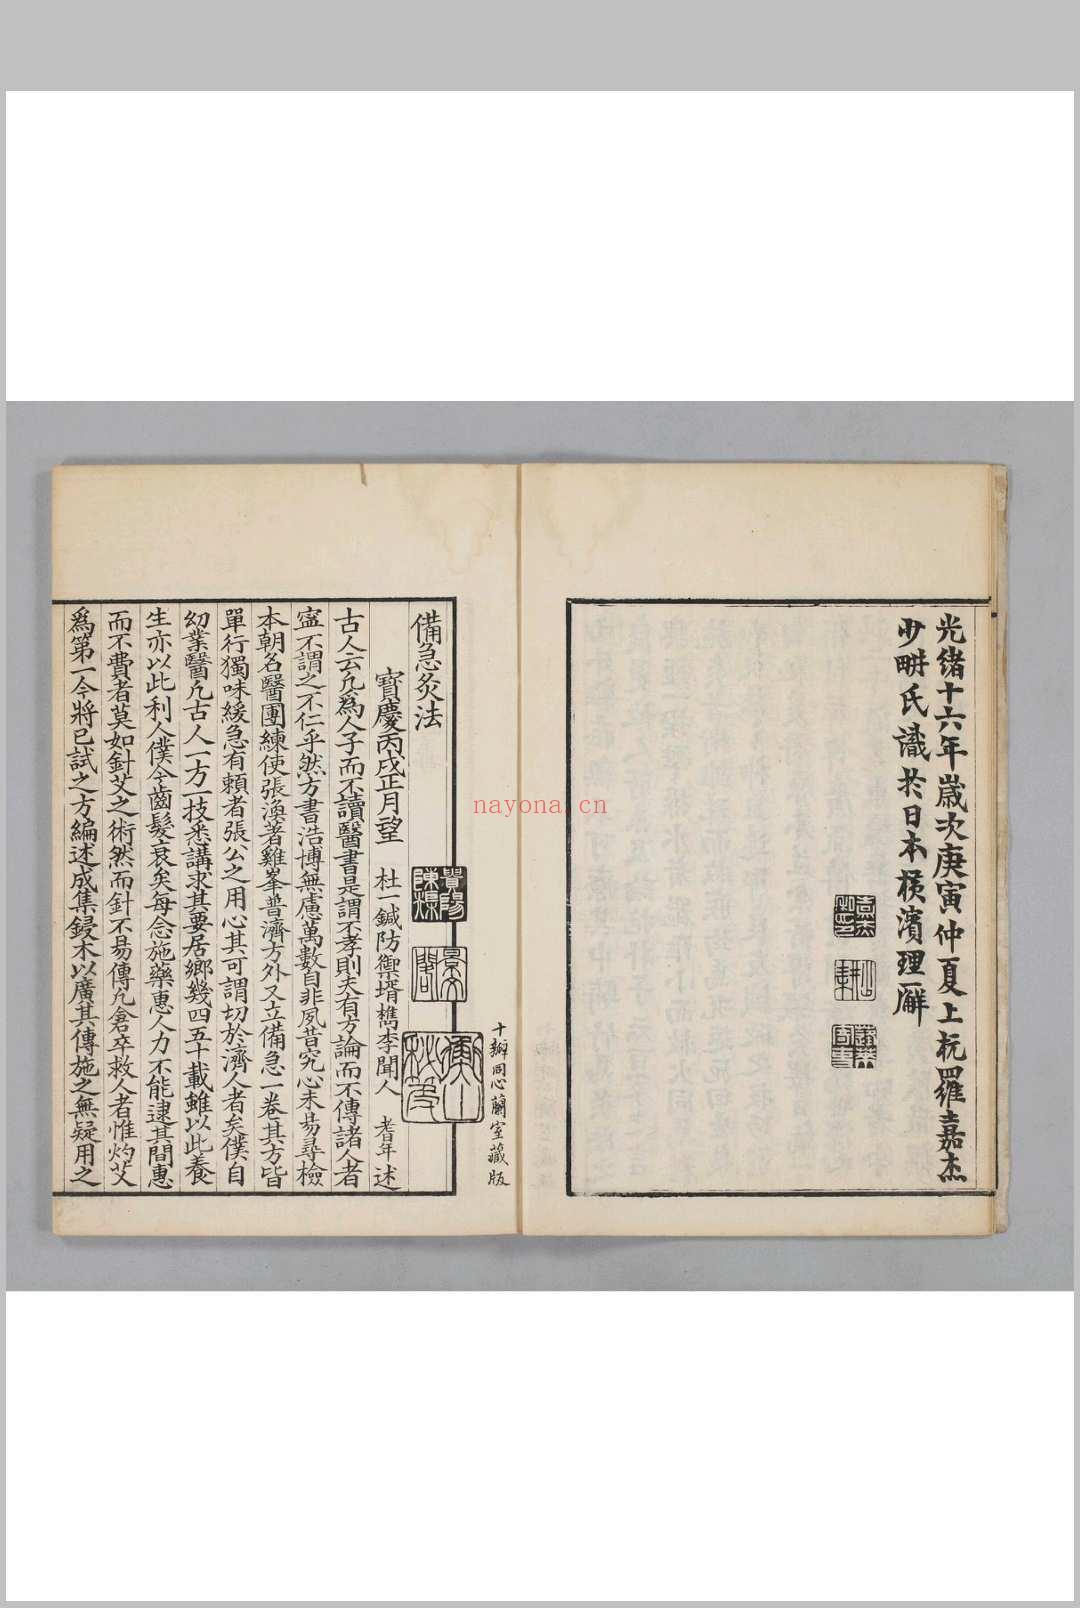 光緒十六年歲次庚寅仲夏上杭羅嘉杰
少畊氏識於日本橫濱理廨
十瓣同心蘭室藏版
備急灸法
寶慶丙戌正月望 杜一鍼防禦壻檇李聞人 耆年 述
古人云凡為人子而不讀醫書是謂不孝則夫有方論而不傳諸人者
寍不謂之不仁乎然方書浩博無慮萬數自非夙昔究心未易尋檢
本朝名醫團練使張渙著雞峯普濟方外又立備急一卷其方皆
單行獨味緩急有賴者張公之用心其可謂切於濟人者矣僕自
幼業醫凡古人一方一技悉講求其要居鄉幾四五十載雖以此養
生亦以此利人僕今齒髮衰矣每念施藥惠人力不能逮其間惠
而不費者莫如針艾之術然而針不易傳凡倉卒救人者惟灼艾
為第一今將已試之方編述成集鋟木以廣其傳施之無疑用之
nayona.cn